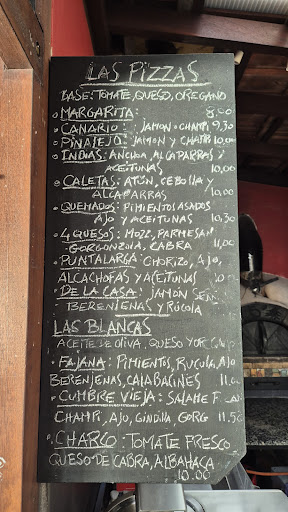 LAS PIZZAS
BASE: TOMATE, QUESO, OREGANO
• MARGARITA: 8,00
• CANARIO: JAMON • CHAMPI 9,30
• PINALEJO: JAMON Y CHAMPI 10,00
• INDIAS: ANCHOA, ALCAPARRAS Y
ACEITUNAS 10,00
• CALETAS: ATÚN, CEBOLLA Y
ALCAPARRAS 10,00
• QUEMADOS: PIMIENTOS ASADOS
AJO Y ACEITUNAS 10,30
• 4 QUESOS: MOZZ, PARMESAN
GORGONZOLA, CABRA 11,00
• PUNTALARGA: CHORIZO, AJO,
ALCACHOFAS Y ACEITUNAS
• DE LA CASA: JAMÓN
BERENJENAS Y RÚCOLA
LAS BLANCAS
ACEITE DE OLIVA, QUESO Y
• FAJANA: PIMIENTOS, RUCULA, AJO
BERENJENAS, CALABACINES
• CUMBRE VIEJA: SALAME
CHAMPI, AJO, GINDILLA GORG 11,50
• CHARCO: TOMATE FRESCO
QUESO DE CABRA, ALBAHACA
10.00